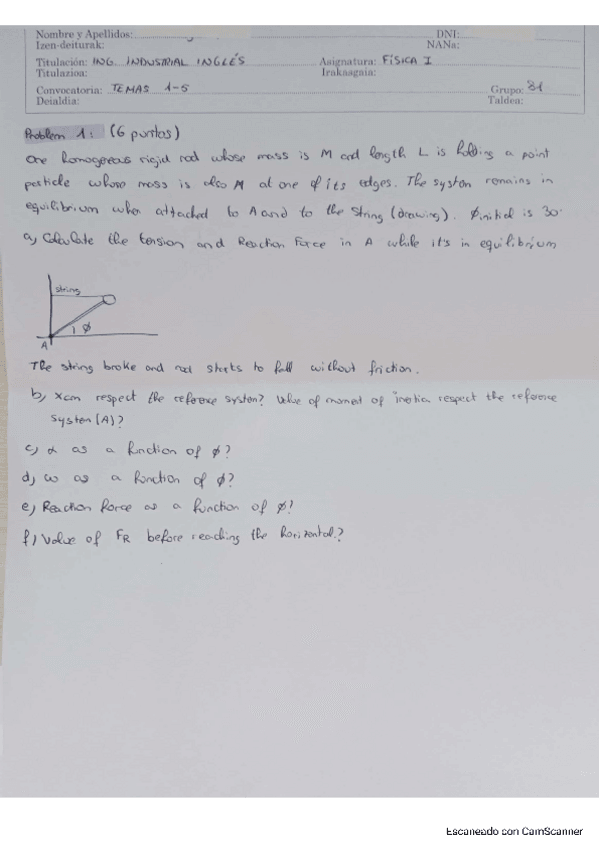 Nombre y Apellidos: DNI:
Izen-deiturak: NANa:
Titulación: ING. INDUSTRIAL INGLÉS Asignatura: FÍSICA I
Titulazioa: Irakasgaia:
Convocatoria: TEMAS 1-5 Grupo: 81
Deialdia: Taldea:
Problem 1: (6 puntos)
One homogereous rigid rod whose mass is M and length L is holding a point
particle whose mass is also M at one of its edges. The system remains in
equilibrium when attached to A and to the string (drawing). Øinitial is 30º
a) Calculate the tension and Reaction Force in A while it's in equilibrium
string
Ø
A
The string broke and rod starts to fall without friction.
b) xcm respect the reference system? Value of moment of inertia respect the reference
system (A)?
c) α as a function of Ø?
d) ω as a function of Ø?
e) Reaction force as a function of Ø?
f) Value of FR before reaching the horizontal?
Escaneado con CamScanner